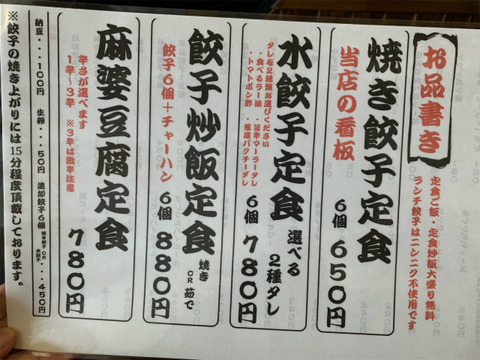 お品書き
定食ご飯・定食炒飯大盛り無料
ランチ餃子はニンニク不使用です
焼き餃子定食
当店の看板
6個 650円
水餃子定食
選べる
2種タレ
タレを2種類お選びください
・食べるラー油 ・旨辛マーラータレ
・トマトポン酢 ・葱塩パクチーダレ
6個 780円
餃子炒飯定食
焼き
OR
茹で
餃子6個+チャーハン
6個 880円
麻婆豆腐定食
辛さが選べます
1辛~3辛 ※3辛は激辛注意
780円
納豆・・・100円 生卵・・・50円 追加餃子6個 焼き餃子 OR 水餃子・・・450円
※餃子の焼き上がりには15分程度頂戴しております。